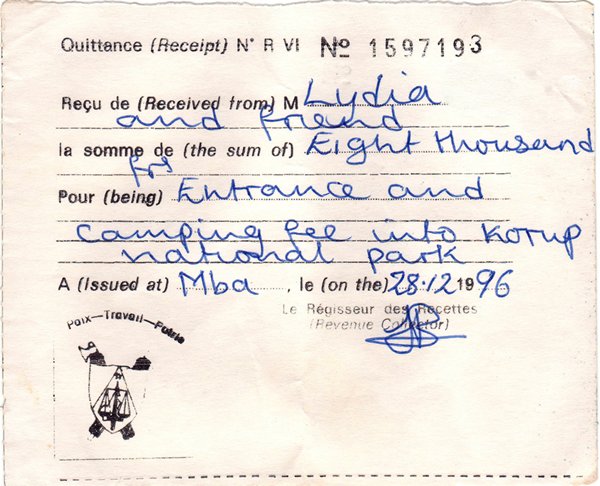 Quittance (Receipt) N° R VI Nº 1597193
Reçu de (Received from) M Lydia
and friend
la somme de (the sum of) Eight thousand
frs
Pour (being) Entrance and
camping fee into Korup
national park
A (Issued at) Mba, le (on the) 28.12 1996
Le Régisseur des Recettes
(Revenue Collector)
Paix—Travail—Patrie